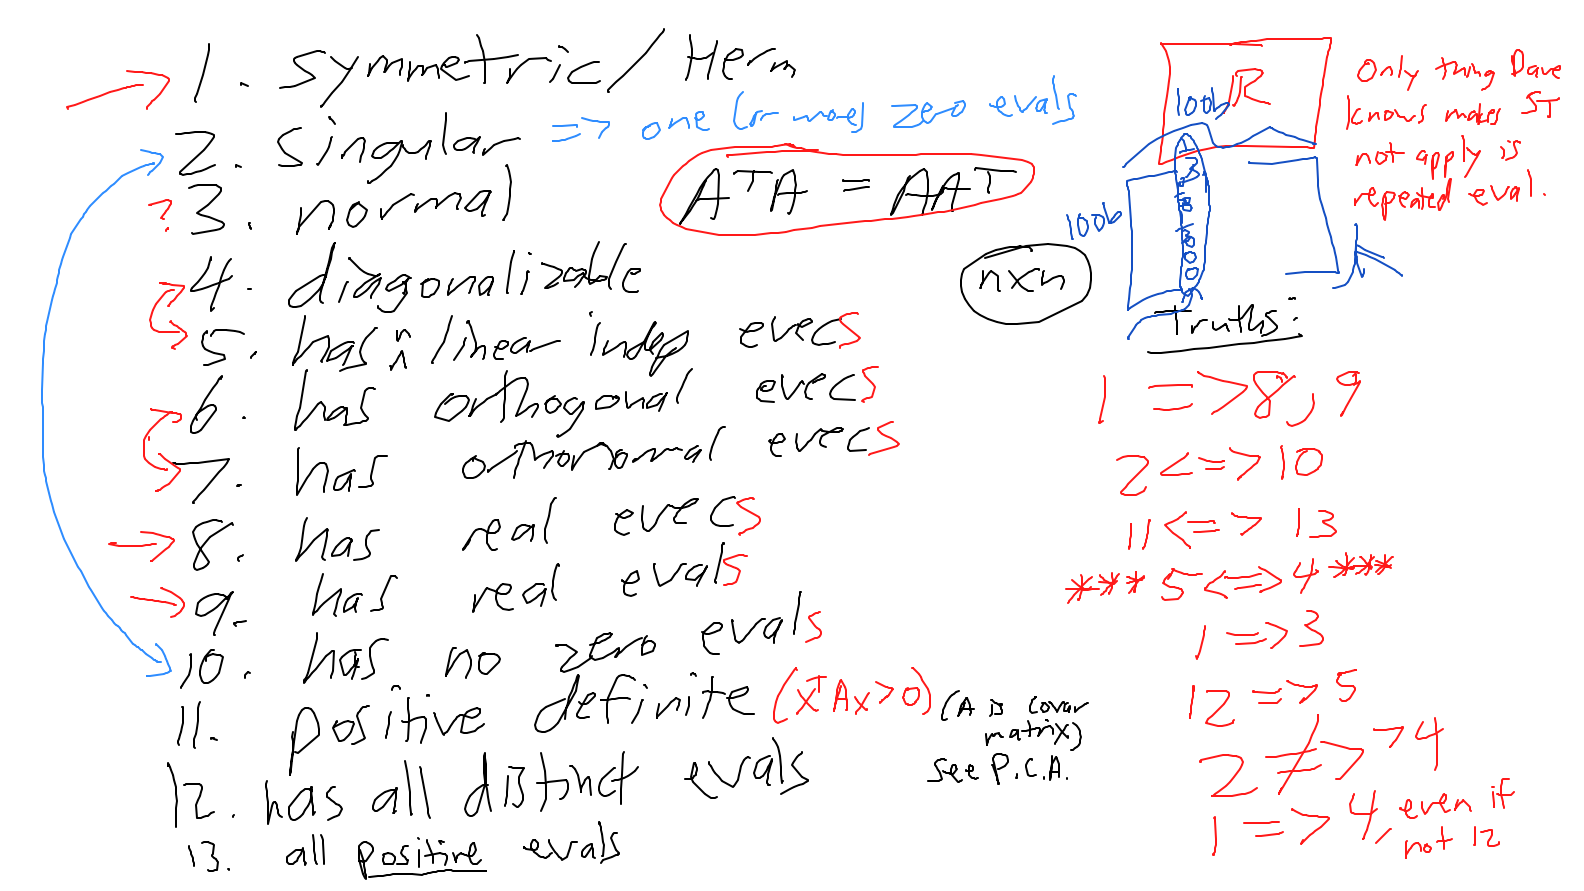 1. symmetric/Herm
2. singular => one (or more) zero evals
? 3. normal
AᵀA = AAᵀ
4. diagonalizable
nxn
5. has n linear indep evecs
6. has orthogonal evecs
7. has orthonormal evecs
8. has real evecs
9. has real evals
10. has no zero evals
11. positive definite (xᵀAx>0) (A is covar
matrix)
see P.C.A.
12. has all distinct evals
13. all positive evals
R
100b
100b
Only thing Dave
knows makes ST
not apply is
repeated eval.
Truths:
1 => 8, 9
2 <=> 10
11 <=> 13
*** 5 <=> 4 ***
1 => 3
12 => 5
2 ≠> >4
1 => 4, even if
not 12